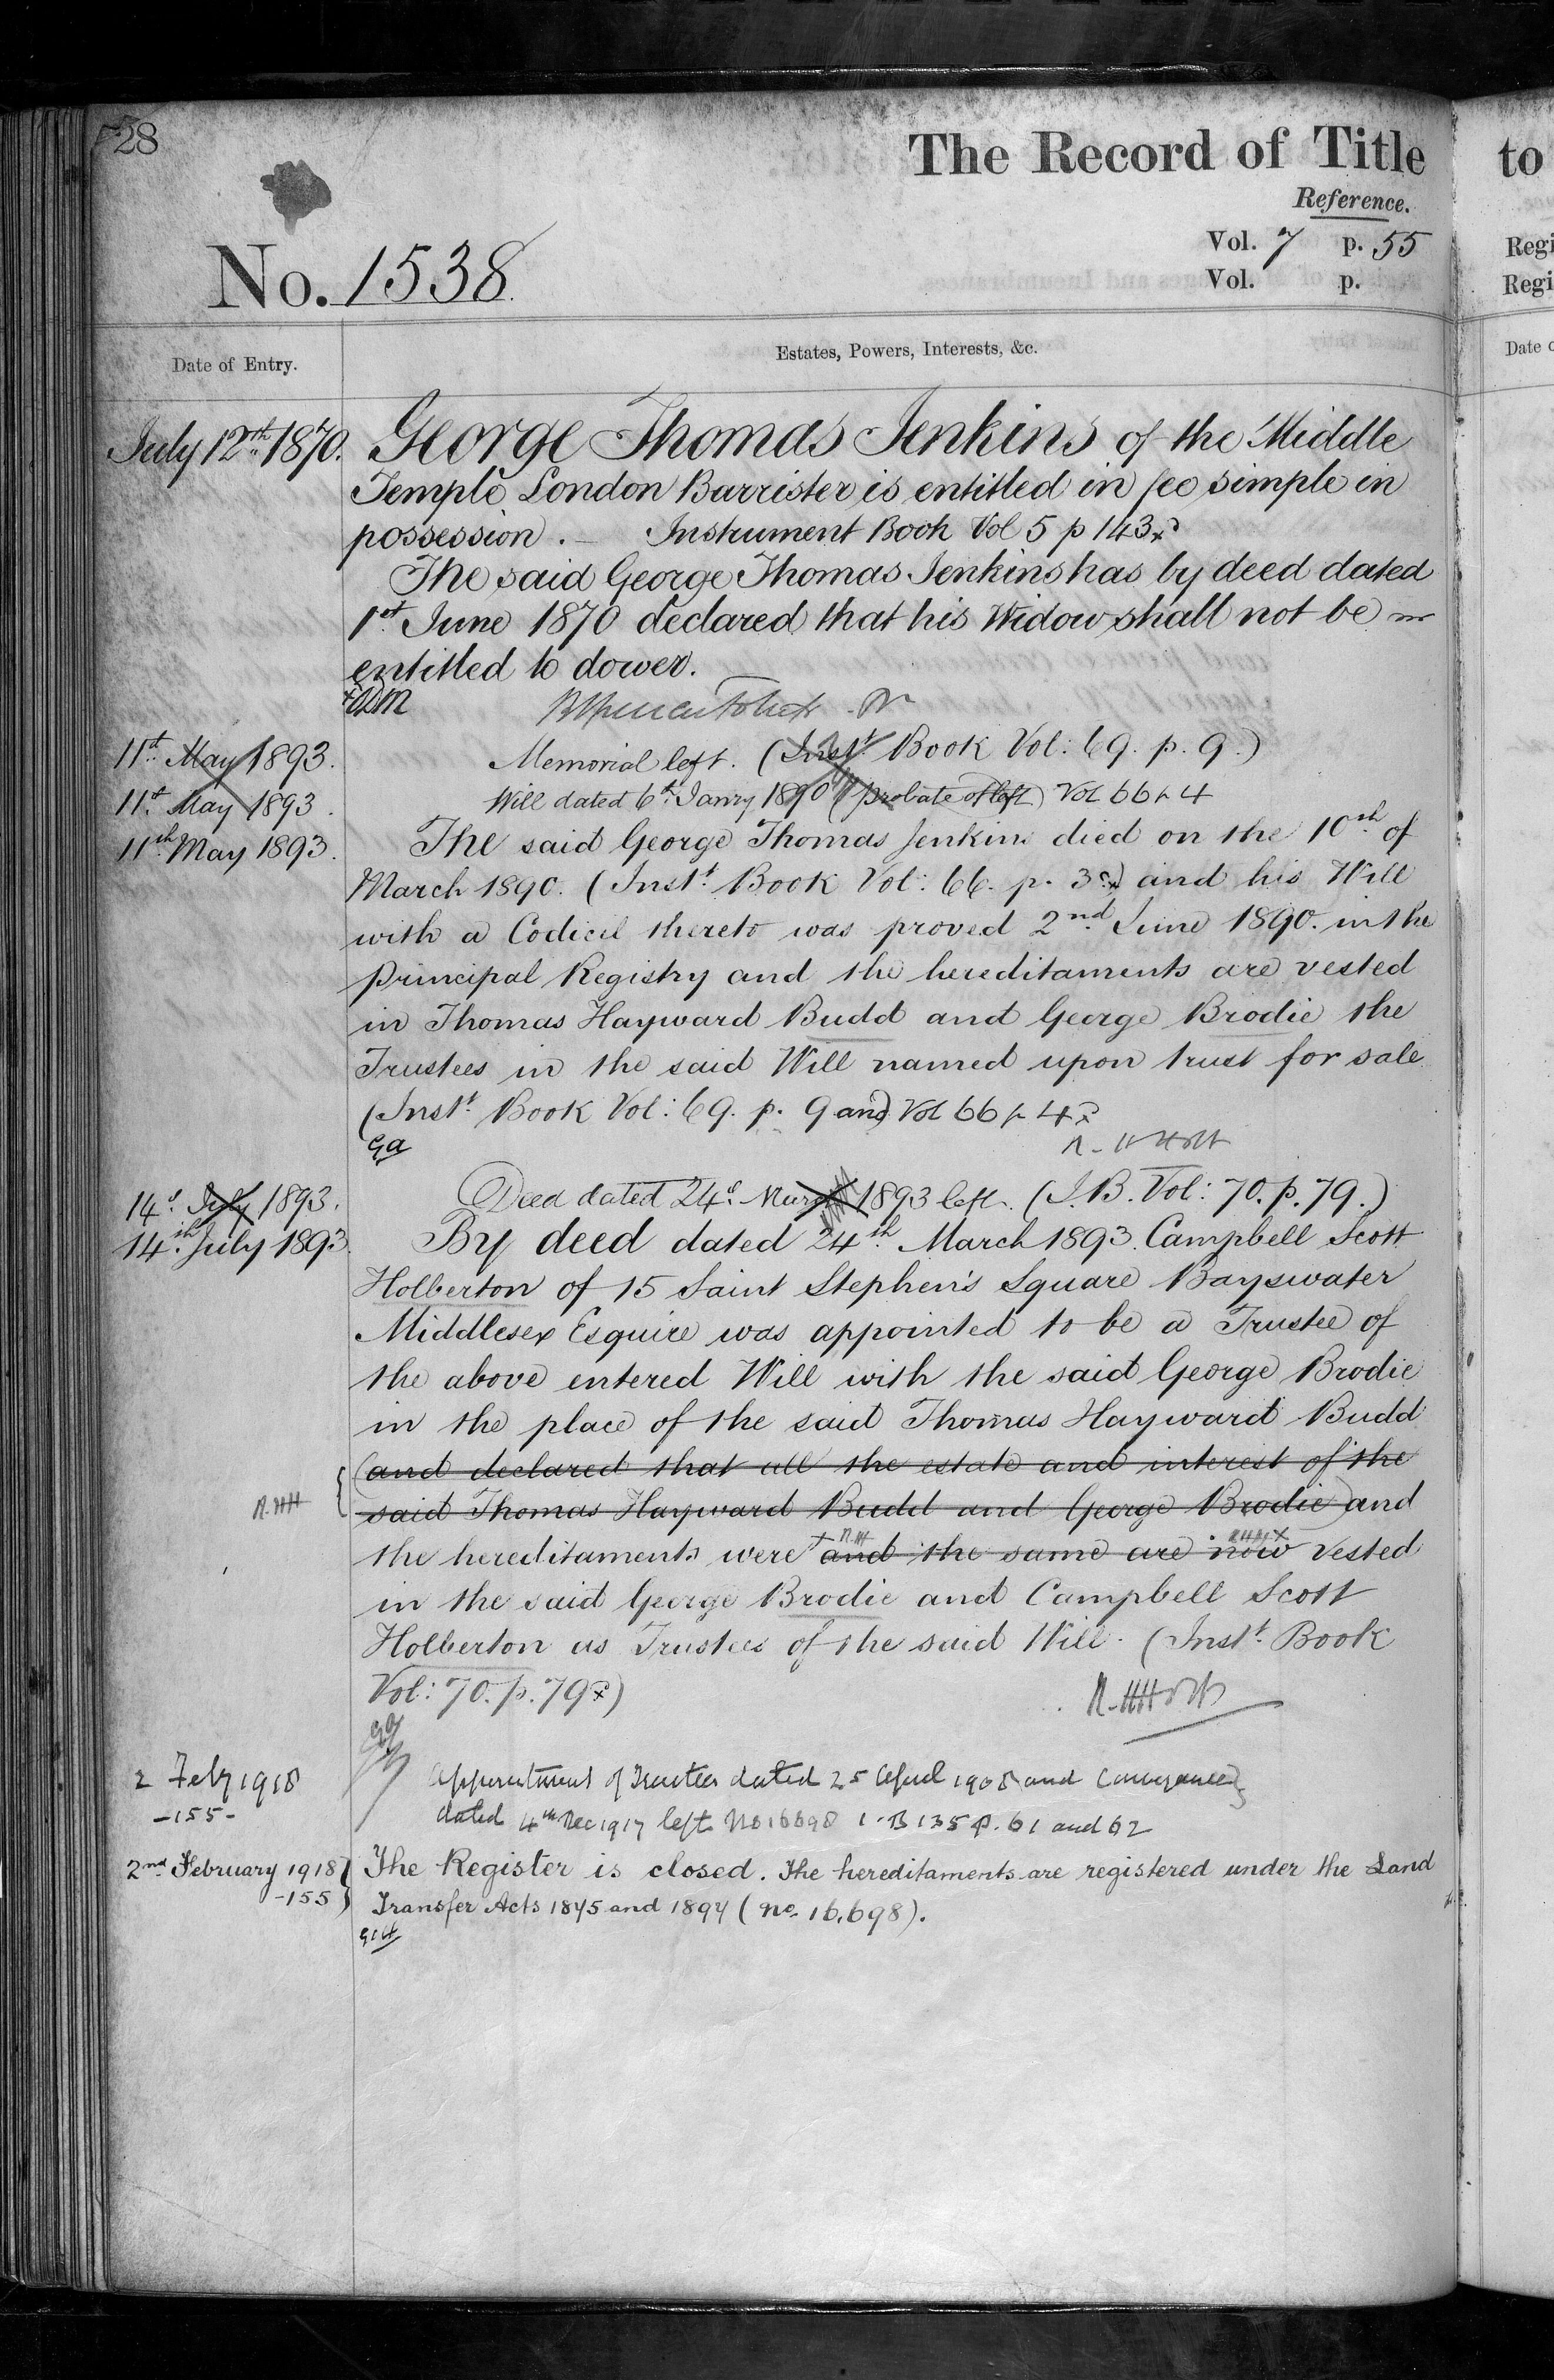 28
The Record of Title
to
Reference.
Vol. 7 p. 55
Regi
Vol. p.
Regi
No. 1538.
Date of Entry.
Estates, Powers, Interests, &c.
Date o
July 12th 1870. George Thomas Jenkins of the Middle
Temple London Barrister is entitled in fee simple in
possession. — Instrument Book Vol 5 p 143
The said George Thomas Jenkins has by deed dated
1st June 1870 declared that his Widow shall not be
entitled to dower.
11th May 1893. Memorial left. (Instt. Book Vol: 69. p. 9.)
11th May 1893. Will dated 6th Janry 1890 (probate of left) Vol 66 p 4
11th May 1893. The said George Thomas Jenkins died on the 10th of
March 1890. (Instt. Book Vol: 66. p. 3) and his Will
with a Codicil thereto was proved 2nd June 1890. in the
Principal Registry and the hereditaments are vested
in Thomas Hayward Budd and George Brodie the
Trustees in the said Will named upon trust for sale
(Instt. Book Vol: 69. p. 9 and Vol 66 p 4
14th July 1893. Deed dated 24th March 1893 left. (I.B. Vol: 70. p. 79.)
14th July 1893. By deed dated 24th March 1893. Campbell Scott
Holberton of 15 Saint Stephen's Square Bayswater
Middlesex Esquire was appointed to be a Trustee of
the above entered Will with the said George Brodie
in the place of the said Thomas Hayward Budd
(and declared that all the estate and interest of the
R.HH said Thomas Hayward Budd and George Brodie) and
the hereditaments were and the same are now vested
in the said George Brodie and Campbell Scott
Holberton as Trustees of the said Will. (Instt. Book
Vol: 70. p. 79)
2 Feby 1918 Appointment of Trustee dated 25 April 1908 and Conveyance
-155- dated 4th Dec 1917 left No 16698 I.B 135 P. 61 and 62
2nd February 1918 The Register is closed. The hereditaments are registered under the Land
-155 Transfer Acts 1875 and 1897 (no. 16,698).